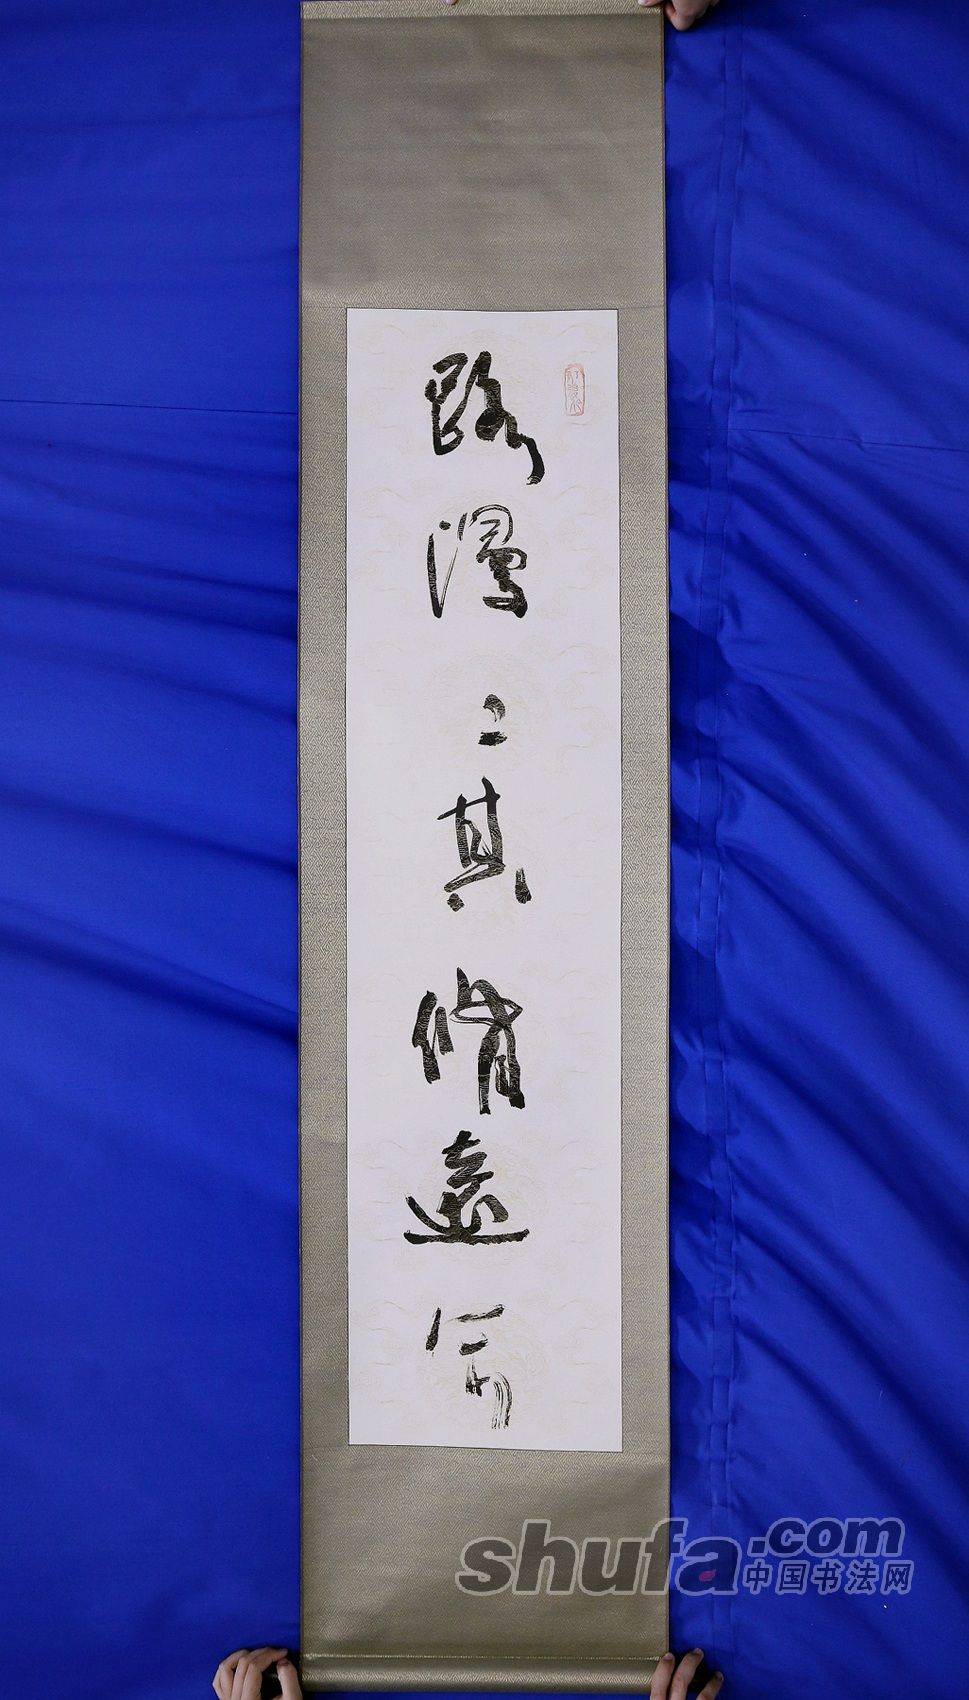 路漫〻其脩遠兮
shufa.com
中国书法网